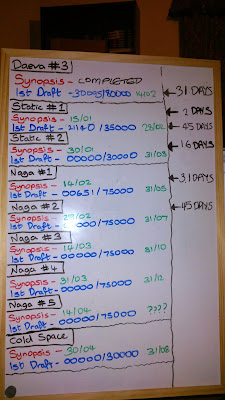 Daeva #3
Synopsis - COMPLETED
1st Draft - 30095/80000 14/02
31 DAYS
Static #1
2 DAYS
Synopsis - 15/01
1st Draft - 21140/35000 28/02
45 DAYS
Static #2
16 DAYS
Synopsis - 30/01
1st Draft - 00000/30000 31/03
Naga #1
31 DAYS
Synopsis - 14/02
1st Draft - 00651/75000 31/05
Naga #2
145 DAYS
Synopsis - 28/02
1st Draft - 00000/75000 31/07
Naga #3
Synopsis - 14/03
1st Draft - 00000/75000 31/10
Naga #4
Synopsis - 31/03
1st Draft - 00000/75000 31/12
Naga #5
Synopsis - 14/04 ????
1st Draft - 00000/75000
Cold Space
Synopsis - 30/04
1st Draft - 00000/30000 31/08